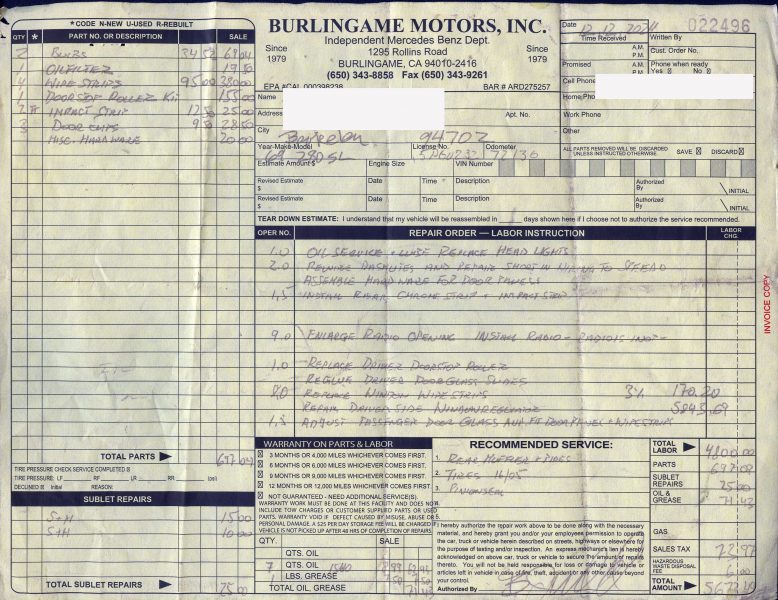 *CODE N-NEW U-USED R-REBUILT
QTY * PART NO. OR DESCRIPTION SALE
2 BULBS 34 52 69 04
1 OIL FILTER 19 50
4 WIPE STRIPS 95 00 380 00
1 DOORSTOP ROLLER KIT 155 00
2 IMPACT STRIP 12 50 25 00
3 DOOR CLIPS 9 50 28 50
MISC. HARDWARE 20 00
TOTAL PARTS 697 04
TIRE PRESSURE CHECK SERVICE COMPLETED
TIRE PRESSURE: LF RF LR RR (psi)
DECLINED Initial REASON:
SUBLET REPAIRS
S+H 15 00
S+H 10 00
TOTAL SUBLET REPAIRS 25 00
BURLINGAME MOTORS, INC.
Independent Mercedes Benz Dept.
Since 1979 1295 Rollins Road Since 1979
BURLINGAME, CA 94010-2416
(650) 343-8858 Fax (650) 343-9261
EPA #CAL 000398238 BAR # ARD275257
Name
Address Apt. No.
City 94702
Year-Make-Model License No. Odometer
69 280 SL 72136
Estimate Amount $ Engine Size VIN Number
Revised Estimate $ Date Time Description Authorized By INITIAL
Revised Estimate $ Date Time Description Authorized By INITIAL
Date 12 12 2024 022496
Time Received Written By
A.M. P.M. Cust. Order No.
Promised A.M. P.M. Phone when ready Yes No
Cell Phone
Home Phone
Work Phone
Other
ALL PARTS REMOVED WILL BE DISCARDED UNLESS INSTRUCTED OTHERWISE. SAVE DISCARD
TEAR DOWN ESTIMATE: I understand that my vehicle will be reassembled in days shown here if I choose not to authorize the service recommended.
OPER NO. REPAIR ORDER — LABOR INSTRUCTION LABOR CHG.
1.0 OIL SERVICE + LUBE REPLACE HEAD LIGHTS
2.0 REWIRE DASH LITES AND REPAIR SHORT IN WIRING TO SPEEDO
ASSEMBLE HARDWARE FOR DOOR PANELS
1.5 INSTALL REAR CHROME STRIP + IMPACT STRIP
9.0 ENLARGE RADIO OPENING INSTALL RADIO - RADIO IS INOP-
1.0 REPLACE DRIVER DOORSTOP ROLLER
REGLUE DRIVER DOOR GLASS SLIDES
8.0 REPLACE WINDOW WIPE STRIPS 3% 170.20
REPAIR DRIVER SIDE WINDOW REGULATOR 5843.69
1.8 ADJUST PASSENGER DOOR GLASS AND FIT DOOR PANEL + WIPE STRIPS
WARRANTY ON PARTS & LABOR
3 MONTHS OR 4,000 MILES WHICHEVER COMES FIRST.
6 MONTHS OR 6,000 MILES WHICHEVER COMES FIRST.
9 MONTHS OR 9,000 MILES WHICHEVER COMES FIRST.
12 MONTHS OR 12,000 MILES WHICHEVER COMES FIRST.
NOT GUARANTEE - NEED ADDITIONAL SERVICE(S).
WARRANTY WORK MUST BE DONE AT THIS FACILITY AND DOES NOT
INCLUDE TOW CHARGES OR CUSTOMER SUPPLIED PARTS OR USED
PARTS. WARRANTY VOID IF DEFECT CAUSED BY MISUSE, ABUSE OR
PERSONAL DAMAGE. A $25 PER DAY STORAGE FEE WILL BE CHARGED IF
VEHICLE IS NOT PICKED UP AFTER 48 HRS OF COMPLETION OF REPAIRS.
QTY. SALE
QTS. OIL
7 QTS. OIL 15/40
LBS. GREASE
TOTAL OIL, GREASE 71 43
RECOMMENDED SERVICE:
1. REAR MUFFLER + PIPES
2. TIRES 16/05
3. PINION SEAL
I hereby authorize the repair work above to be done along with the necessary
material, and hereby grant you and/or your employees permission to operate
the car, truck or vehicle herein described on streets, highways or elsewhere
for the purpose of testing and/or inspection. An express mechanic's lien is hereby
acknowledged on above car, truck or vehicle to secure the amount of repairs
thereto. You will not be held responsible for loss or damage to vehicle or
articles left in vehicle in case of fire, theft, accident or any other cause beyond
your control.
Authorized By
TOTAL LABOR 4800 00
PARTS 697 04
SUBLET REPAIRS 25 00
OIL & GREASE 71 43
GAS
SALES TAX 73 97
HAZARDOUS WASTE DISPOSAL FEE 6 00
TOTAL AMOUNT 5673 49
INVOICE COPY